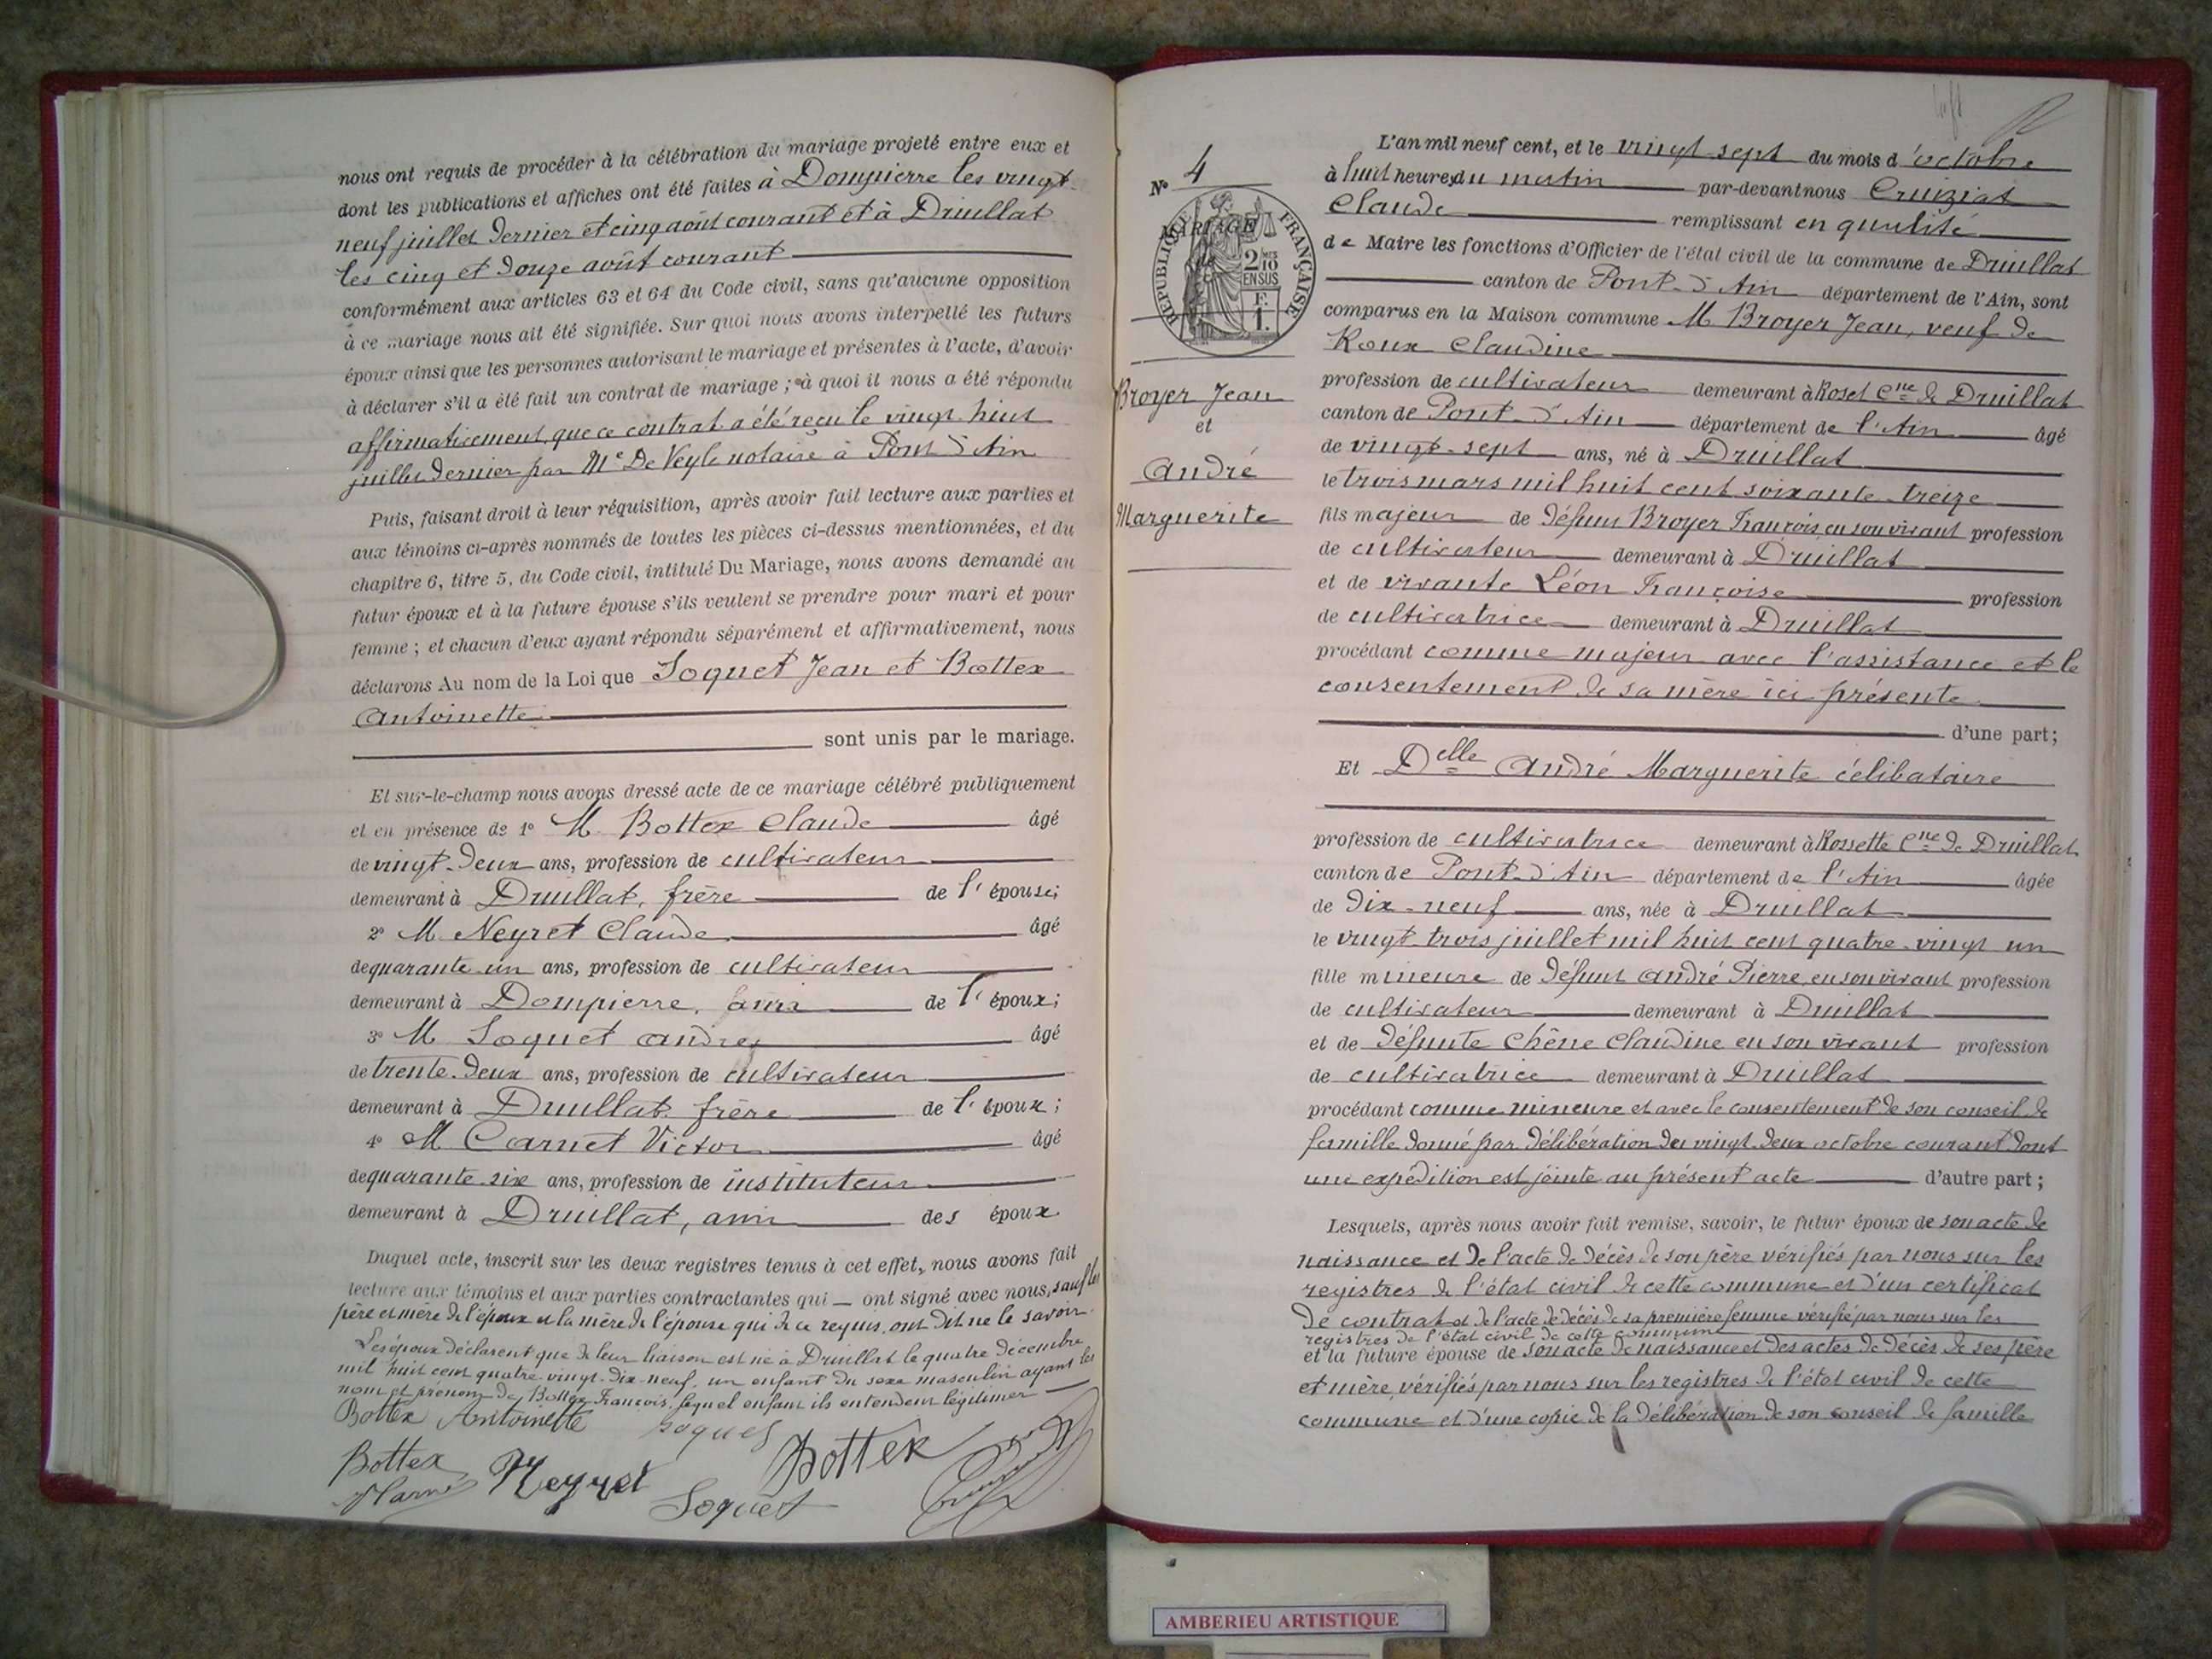 nous ont requis de procéder à la célébration du mariage projeté entre eux et
dont les publications et affiches ont été faites à Dompierre les vingt-
neuf juillet dernier et cinq août courant et à Druillat
les cinq et douze août courant
conformément aux articles 63 et 64 du Code civil, sans qu'aucune opposition
à ce mariage nous ait été signifiée. Sur quoi nous avons interpellé les futurs
époux ainsi que les personnes autorisant le mariage et présentes à l'acte, d'avoir
à déclarer s'il a été fait un contrat de mariage ; à quoi il nous a été répondu
affirmativement, que ce contrat a été reçu le vingt huit
juillet dernier par Me De Veyle notaire à Pont d'Ain
Puis, faisant droit à leur réquisition, après avoir fait lecture aux parties et
aux témoins ci-après nommés de toutes les pièces ci-dessus mentionnées, et du
chapitre 6, titre 5, du Code civil, intitulé Du Mariage, nous avons demandé au
futur époux et à la future épouse s'ils veulent se prendre pour mari et pour
femme ; et chacun d'eux ayant répondu séparément et affirmativement, nous
déclarons Au nom de la Loi que Soquet Jean et Bottex
Antoinette
sont unis par le mariage.
Et sur-le-champ nous avons dressé acte de ce mariage célébré publiquement
et en présence de 1° M. Bottex Claude âgé
de vingt-deux ans, profession de cultivateur
demeurant à Druillat, frère de l'épouse;
2° M Neyret Claude âgé
de quarante un ans, profession de cultivateur
demeurant à Dompierre, ami de l'époux;
3° M Soquet André âgé
de trente-deux ans, profession de cultivateur
demeurant à Druillat frère de l'époux;
4° M Carnet Victor âgé
de quarante-six ans, profession de instituteur
demeurant à Druillat, ami des époux.
Duquel acte, inscrit sur les deux registres tenus à cet effet, nous avons fait
lecture aux témoins et aux parties contractantes qui — ont signé avec nous, sauf les
père et mère de l'époux et la mère de l'épouse qui de ce requis, ont dit ne le savoir.
Les époux déclarent que de leur liaison est né à Druillat le quatre décembre
mil huit cent quatre-vingt-dix-neuf, un enfant du sexe masculin ayant les
nom et prénom de Bottex François, lequel enfant ils entendent légitimer
Bottex Antoinette Soquet Bottex
Bottex Neyret Soquet
N° 4
RÉPUBLIQUE FRANÇAISE
MARIAGE
2/10
EN SUS
F.
1.
Broyer Jean
et
André
Marguerite
L'an mil neuf cent, et le vingt sept du mois d'octobre
à huit heures du matin par-devant nous Cruiziat
Claude remplissant en qualité
de Maire les fonctions d'Officier de l'état civil de la commune de Druillat
canton de Pont-d'Ain département de l'Ain, sont
comparus en la Maison commune M. Broyer Jean, veuf de
Roux Claudine
profession de cultivateur demeurant à Roset Cne de Druillat
canton de Pont-d'Ain département de l'Ain âgé
de vingt-sept ans, né à Druillat
le trois mars mil huit cent soixante-treize
fils majeur de défunt Broyer François, en son vivant profession
de cultivateur demeurant à Druillat
et de vivante Léon Françoise profession
de cultivatrice demeurant à Druillat
procédant comme majeur avec l'assistance et le
consentement de sa mère ici présente
d'une part;
Et Delle André Marguerite célibataire
profession de cultivatrice demeurant à Rossette Cne de Druillat
canton de Pont-d'Ain département de l'Ain âgée
de dix-neuf ans, née à Druillat
le vingt trois juillet mil huit cent quatre-vingt un
fille mineure de défunt André Pierre, en son vivant profession
de cultivateur demeurant à Druillat
et de défunte Chêne Claudine en son vivant profession
de cultivatrice demeurant à Druillat
procédant comme mineure et avec le consentement de son conseil de
famille donné par délibération du vingt deux octobre courant dont
une expédition est jointe au présent acte d'autre part;
Lesquels, après nous avoir fait remise, savoir, le futur époux de son acte de
naissance et de l'acte de décès de son père vérifiés par nous sur les
registres de l'état civil de cette commune et d'un certificat
de contrat et de l'acte de décès de sa première femme vérifié par nous sur les
registres de l'état civil de cette commune
et la future épouse de son acte de naissance et des actes de décès de ses père
et mère, vérifiés par nous sur les registres de l'état civil de cette
commune et d'une copie de la délibération de son conseil de famille
AMBERIEU ARTISTIQUE